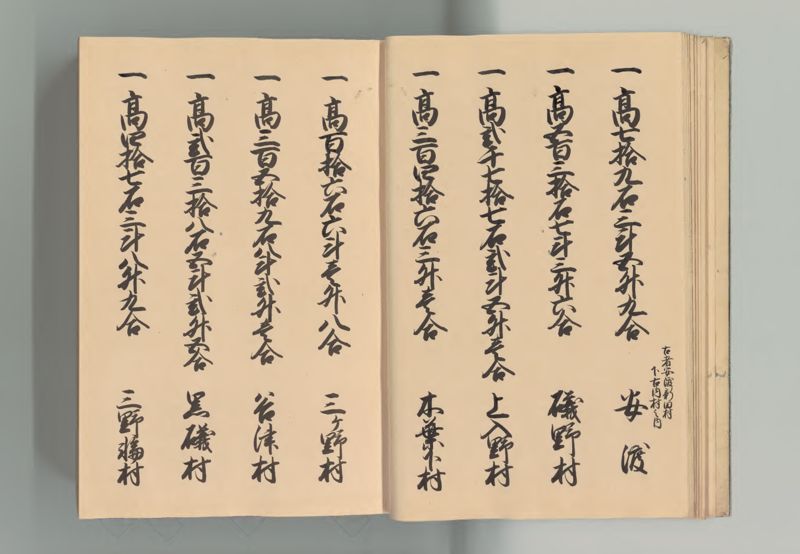 一 高七拾九石三斗五升九合 安渡
右者安渡新田村
下古内村之内
一 高五百三拾石七斗三升六合 磯野村
一 高弐千七拾七石弐斗五升壱合 上入野村
一 高三百四拾六石三升壱合 木葉下村
一 高百拾六石六斗壱升八合 三ヶ野村
一 高三百五拾九石八斗弐升壱合 谷津村
一 高弐百三拾八石五斗弐升五合 黒磯村
一 高四拾七石三斗八升九合 三野輪村